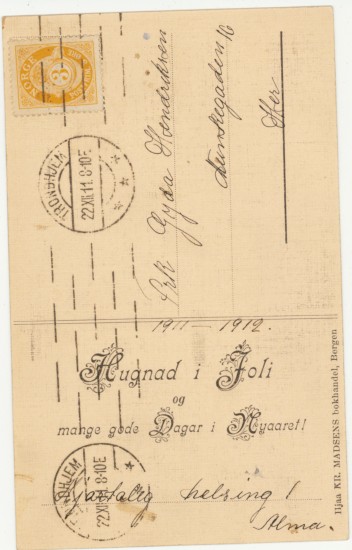 NORGE
3
TRONDHJEM
22.XII.11.8-10E
Frk Gyda Hendriksen
Munkegaden 16
Her
1911 – 1912.
Hugnad i Joli
og
mange gode Dagar i Nyaaret!
TRONDHJEM
22.XII.11.8-10E
Hjærtelig helsing!
Alma.
Hjaa KR. MADSENS bokhandel, Bergen